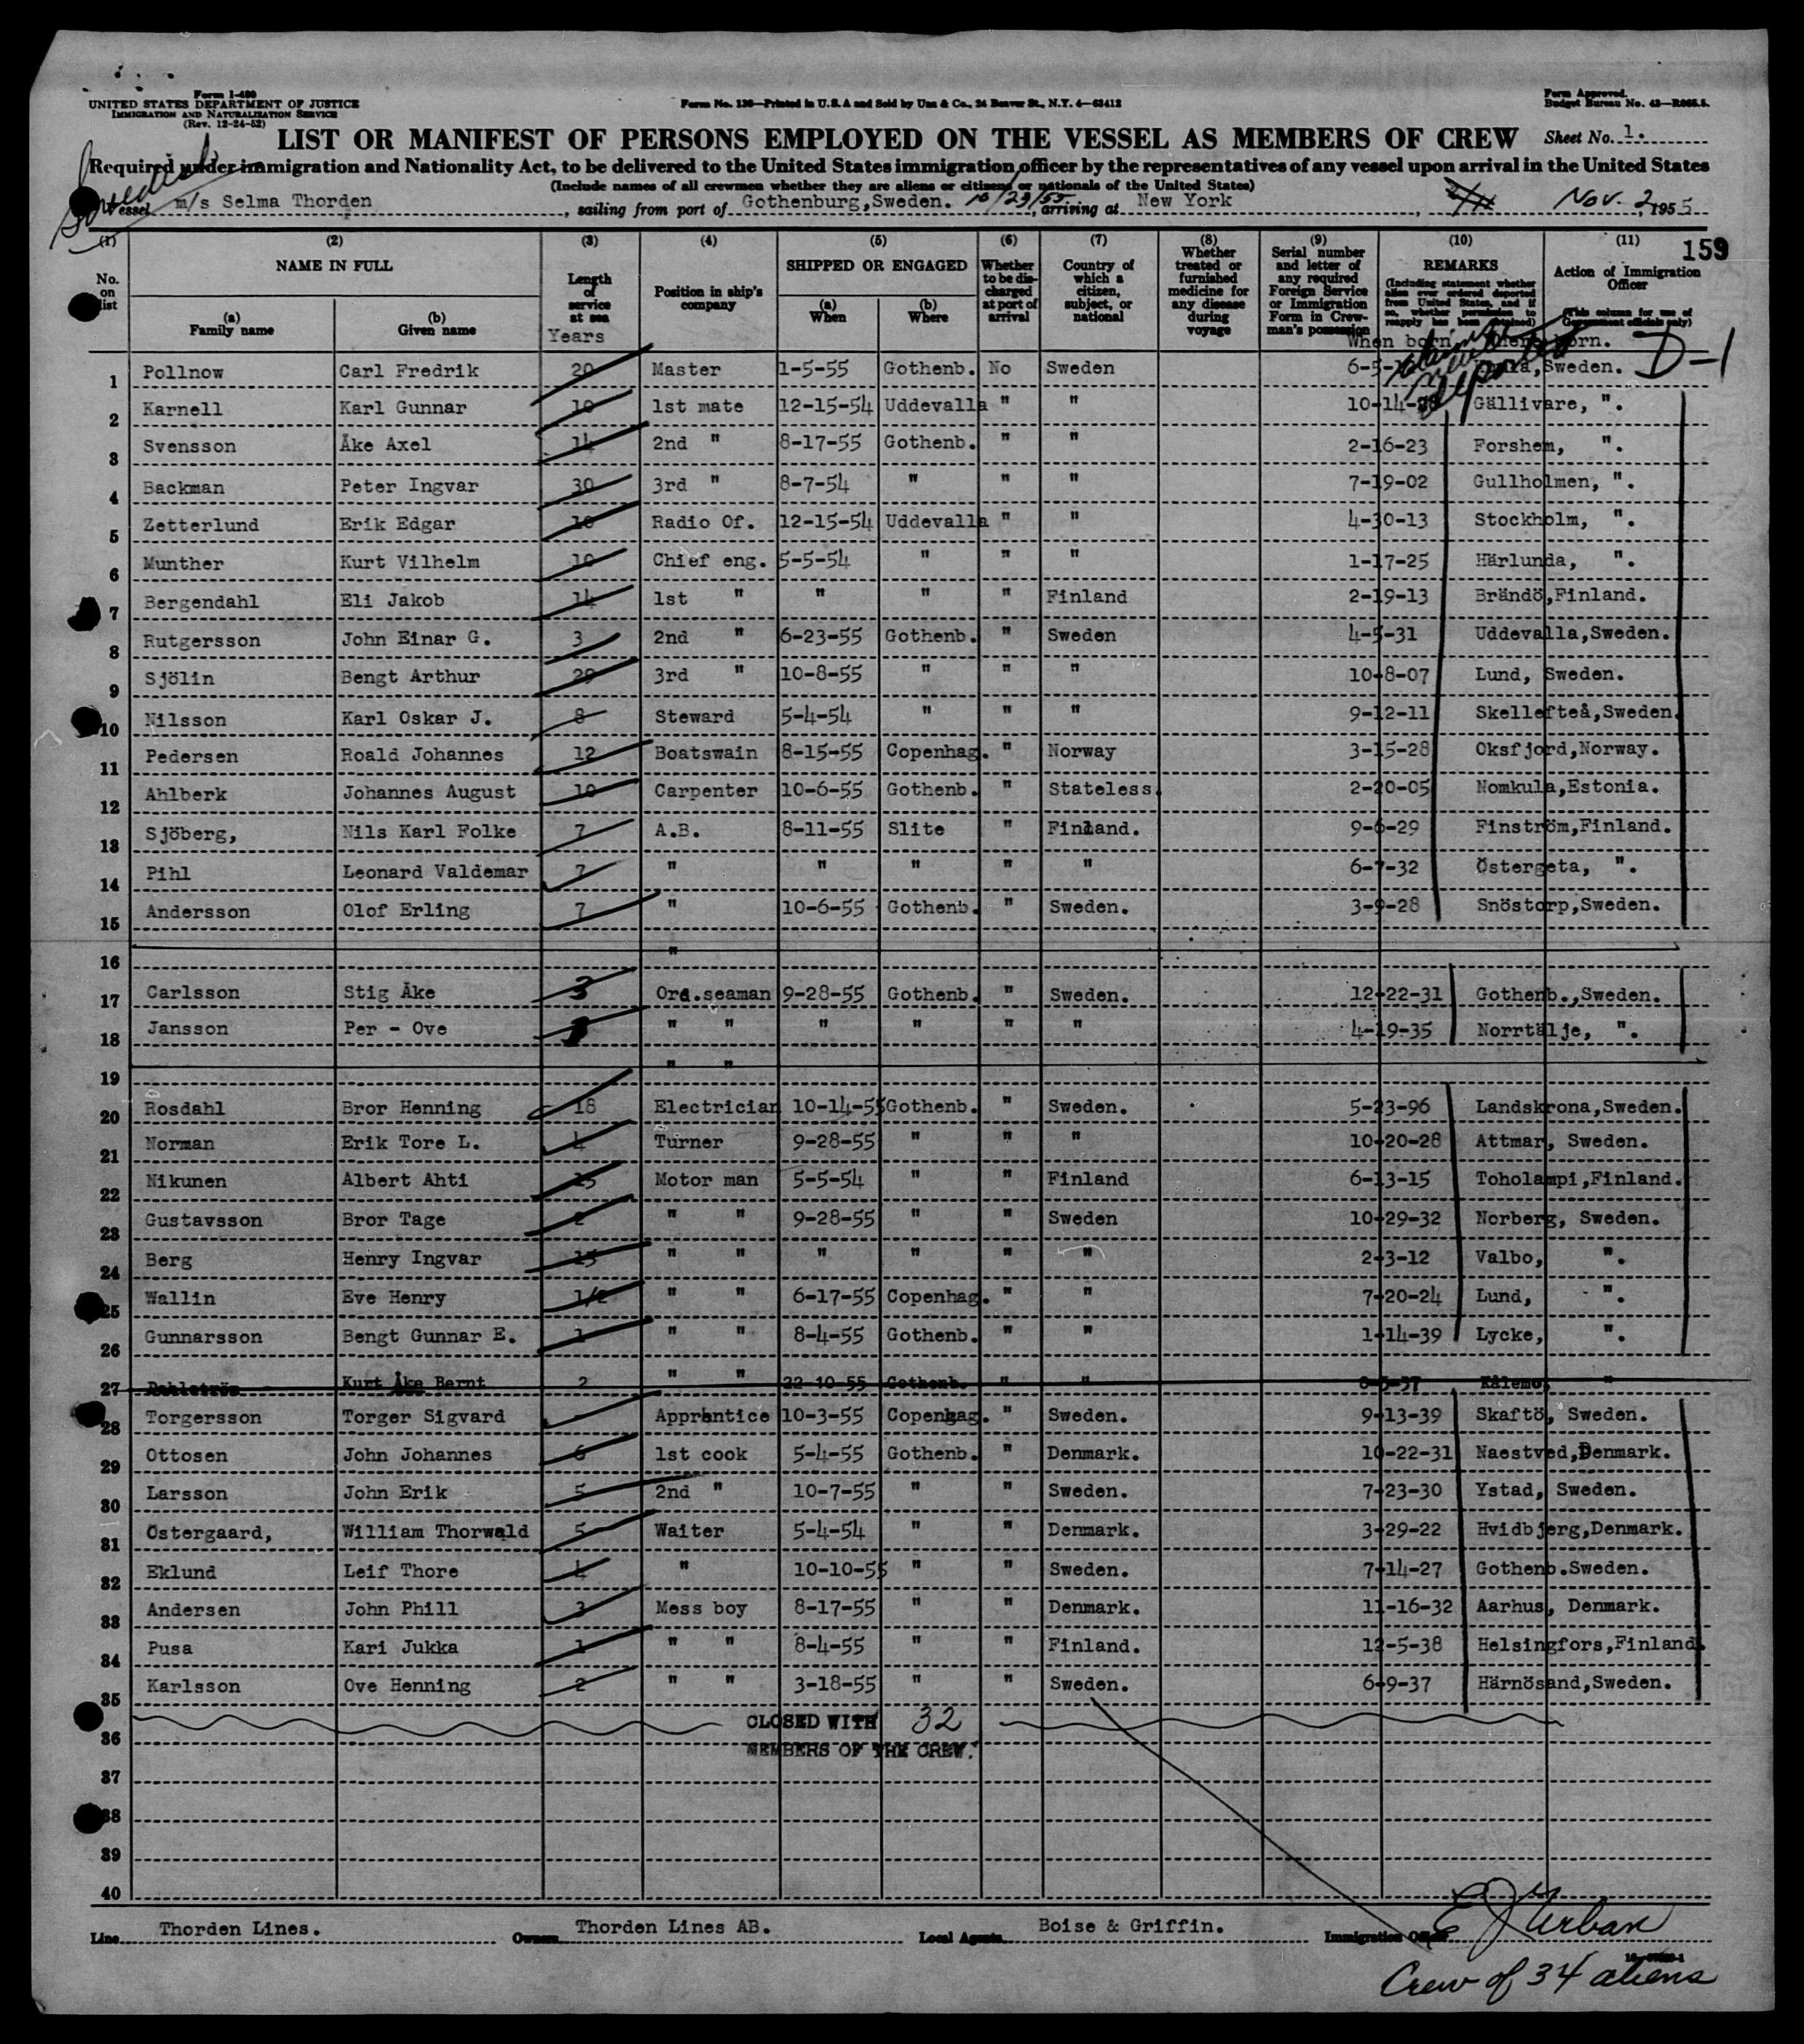 Form I-480
UNITED STATES DEPARTMENT OF JUSTICE
IMMIGRATION AND NATURALIZATION SERVICE
(Rev. 12-24-52)
Form No. 130—Printed in U.S.A and Sold by Unz & Co., 24 Beaver St., N.Y. 4—63412
Form Approved.
Budget Bureau No. 43—R065.5.
LIST OR MANIFEST OF PERSONS EMPLOYED ON THE VESSEL AS MEMBERS OF CREW Sheet No. 1.
Required under immigration and Nationality Act, to be delivered to the United States immigration officer by the representatives of any vessel upon arrival in the United States
(Include names of all crewmen whether they are aliens or citizens or nationals of the United States)
Swedish
Vessel m/s Selma Thorden, sailing from port of Gothenburg,Sweden. 10/23/55, arriving at New York, Nov. 2, 1955
159
(1) (2) (3) (4) (5) (6) (7) (8) (9) (10) (11)
No. on list
NAME IN FULL
(a) Family name
(b) Given name
Length of service at sea
Years
Position in ship's company
SHIPPED OR ENGAGED
(a) When
(b) Where
Whether to be discharged at port of arrival
Country of which a citizen, subject, or national
Whether treated or furnished medicine for any disease during voyage
Serial number and letter of any required Foreign Service or Immigration Form in Crewman's possession
REMARKS
(Including statement whether alien ever ordered deported from United States, and if so, whether permission to reapply has been obtained)
Action of Immigration Officer
(This column for use of Government officials only)
When born. Where born.
D-1
1 Pollnow Carl Fredrik 20 Master 1-5-55 Gothenb. No Sweden Sweden.
2 Karnell Karl Gunnar 10 1st mate 12-15-54 Uddevalla " " Gällivare, ".
3 Svensson Åke Axel 14 2nd " 8-17-55 Gothenb. " " 2-16-23 Forshem, ".
4 Backman Peter Ingvar 30 3rd " 8-7-54 " " " 7-19-02 Gullholmen, ".
5 Zetterlund Erik Edgar 10 Radio Of. 12-15-54 Uddevalla " " 4-30-13 Stockholm, ".
6 Munther Kurt Vilhelm 10 Chief eng. 5-5-54 " " " 1-17-25 Härlunda, ".
7 Bergendahl Eli Jakob 14 1st " " " " Finland 2-19-13 Brändö,Finland.
8 Rutgersson John Einar G. 3 2nd " 6-23-55 Gothenb. " Sweden 4-5-31 Uddevalla,Sweden.
9 Sjölin Bengt Arthur 29 3rd " 10-8-55 " " " 10-8-07 Lund, Sweden.
10 Nilsson Karl Oskar J. 8 Steward 5-4-54 " " " 9-12-11 Skellefteå,Sweden.
11 Pedersen Roald Johannes 12 Boatswain 8-15-55 Copenhag. " Norway 3-15-28 Oksfjord,Norway.
12 Ahlberk Johannes August 10 Carpenter 10-6-55 Gothenb. " Stateless. 2-20-05 Nomkula,Estonia.
13 Sjöberg, Nils Karl Folke 7 A.B. 8-11-55 Slite " Finland. 9-6-29 Finström,Finland.
14 Pihl Leonard Valdemar 7 " " " " " 6-7-32 Östergeta, ".
15 Andersson Olof Erling 7 " 10-6-55 Gothenb. " Sweden. 3-9-28 Snöstorp,Sweden.
16 "
17 Carlsson Stig Åke 3 Ord.seaman 9-28-55 Gothenb. " Sweden. 12-22-31 Gothenb.,Sweden.
18 Jansson Per - Ove " " " " " " 4-19-35 Norrtälje, ".
19 " "
20 Rosdahl Bror Henning 18 Electrician 10-14-55 Gothenb. " Sweden. 5-23-96 Landskrona,Sweden.
21 Norman Erik Tore L. 4 Turner 9-28-55 " " " 10-20-28 Attmar, Sweden.
22 Nikunen Albert Ahti 15 Motor man 5-5-54 " " Finland 6-13-15 Toholampi,Finland.
23 Gustavsson Bror Tage 2 " " 9-28-55 " " Sweden 10-29-32 Norberg, Sweden.
24 Berg Henry Ingvar 15 " " " " " " 2-3-12 Valbo, ".
25 Wallin Eve Henry 1/2 " " 6-17-55 Copenhag. " " 7-20-24 Lund, ".
26 Gunnarsson Bengt Gunnar E. 1 " " 8-4-55 Gothenb. " " 1-14-39 Lycke, ".
27 Kurt Åke Bernt 2 " " 22-10-55 Gothenb. " " "
28 Torgersson Torger Sigvard Apprentice 10-3-55 Copenhag. " Sweden. 9-13-39 Skaftö, Sweden.
29 Ottosen John Johannes 6 1st cook 5-4-55 Gothenb. " Denmark. 10-22-31 Naestved,Denmark.
30 Larsson John Erik 5 2nd " 10-7-55 " " Sweden. 7-23-30 Ystad, Sweden.
31 Östergaard, William Thorwald 5 Waiter 5-4-54 " " Denmark. 3-29-22 Hvidbjerg,Denmark.
32 Eklund Leif Thore 4 " 10-10-55 " " Sweden. 7-14-27 Gothenb.Sweden.
33 Andersen John Phill 3 Mess boy 8-17-55 " " Denmark. 11-16-32 Aarhus, Denmark.
34 Pusa Kari Jukka 1 " " 8-4-55 " " Finland. 12-5-38 Helsingfors,Finland.
35 Karlsson Ove Henning 2 " " 3-18-55 " " Sweden. 6-9-37 Härnösand,Sweden.
36 CLOSED WITH 32
MEMBERS OF THE CREW.
37
38
39
40
Line Thorden Lines. Owners Thorden Lines AB. Local Agents Boise & Griffin. Immigration Officer E J Urban
Crew of 34 aliens